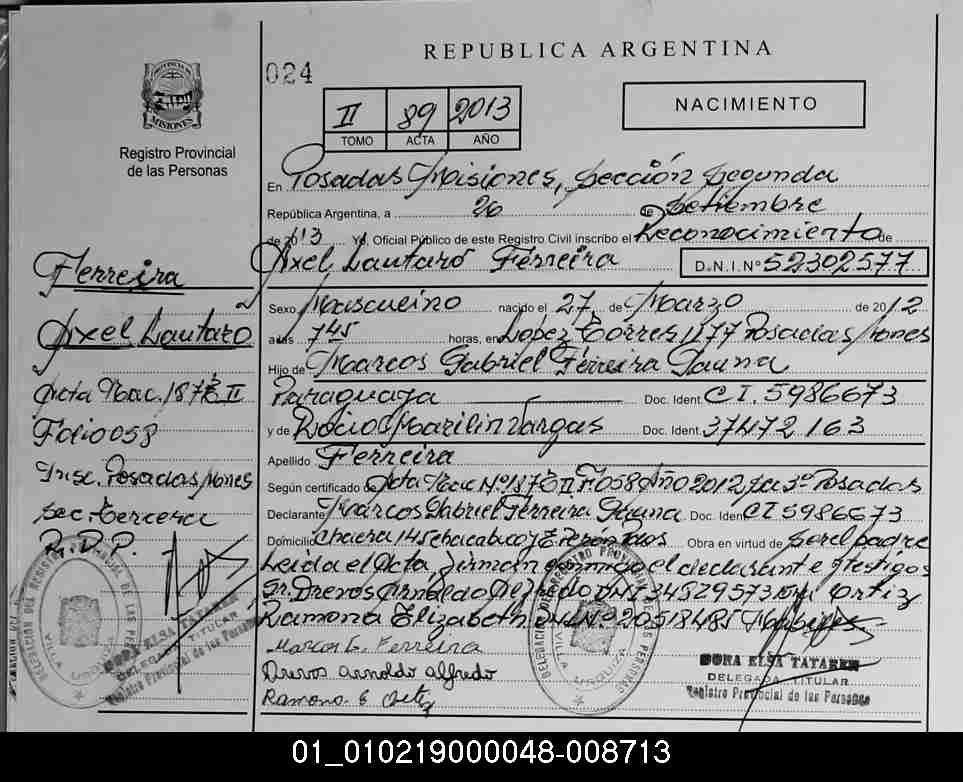 REPUBLICA ARGENTINA
024
PROVINCIA DE
MISIONES
Registro Provincial
de las Personas
II 89 2013
TOMO ACTA AÑO
NACIMIENTO
En Posadas Misiones, Sección Segunda
República Argentina, a 26 de Setiembre
de 2013 Yo, Oficial Público de este Registro Civil inscribo el Reconocimiento de
Axel Lautaro Ferreira D.N.I.Nº 52302577
Sexo Masculino nacido el 27 de Marzo de 2012
a las 745 horas, en Lopez Torres 1177 Posadas Mnes
Hijo de Marcos Gabriel Ferreira Gauna
Paraguaya Doc. Ident. CI. 5986673
y de Rocio Marilin Vargas Doc. Ident. 37472163
Apellido Ferreira
Según certificado de Acta Nac Nº 187 TII Fº 058 Año 2012 Posadas
Declarante Marcos Gabriel Ferreira Gauna Doc. Ident CI 5986673
Domicilio Chacra 145 Obra en virtud de Ser el padre
Leida el Acta, firman conmigo el declarante y testigos
Sr. Drevos Arnoldo Alfredo DNI 34529573 Ortiz
Ramona Elizabeth DNI Nº 20518481
Marcos G. Ferreira
Drevos arnoldo alfredo
Ramona E Ortiz
DORA ELSA TATAREN
DELEGADA TITULAR
Registro Provincial de las Personas
Ferreira
Axel Lautaro
Acta Nac. 187 T II
Folio 058
Insc. Posadas Mnes
Sec. Tercera
R.D.P.
DORA ELSA TATAREN
DELEGADA TITULAR
Registro Provincial de las Personas
01_010219000048-008713